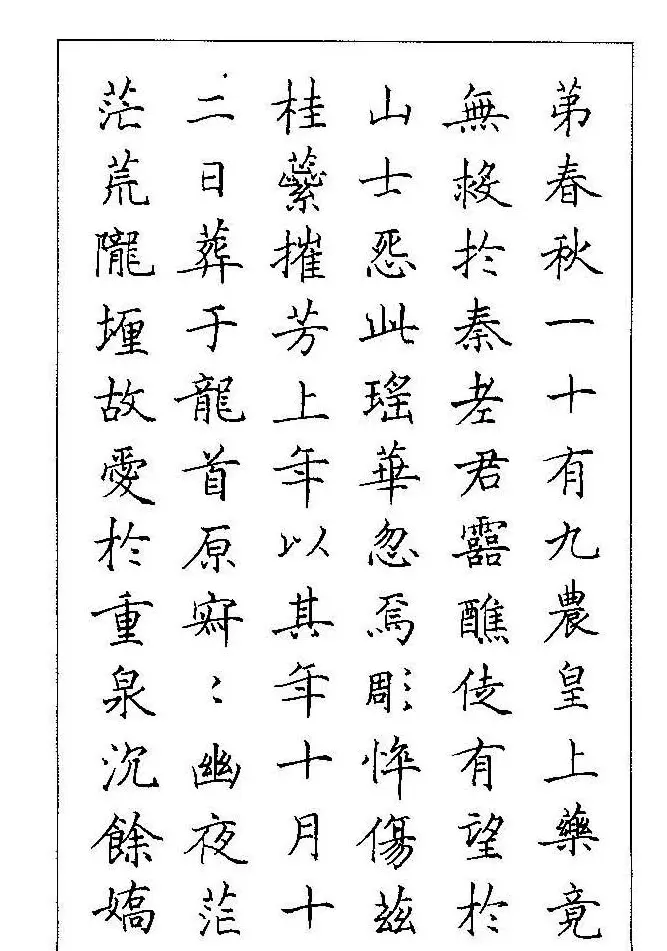 弟春秋一十有九農皇上藥竟
無救於秦老君靈醮徒有望於
山士怨此瑤華忽焉彫悴傷茲
桂蘂摧芳上年以其年十月十
二日葬于龍首原寂〻幽夜茫
茫荒隴堙故愛於重泉沉餘嬌